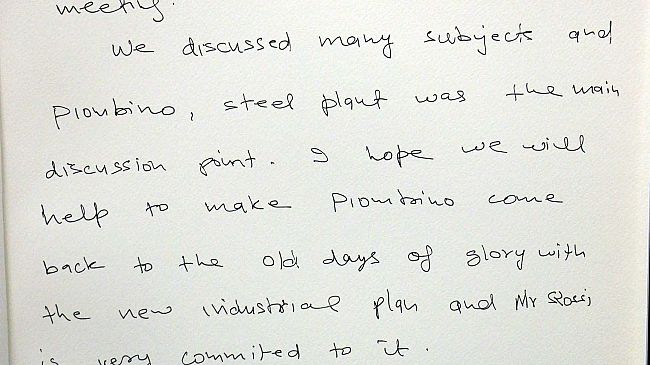 meeting.
We discussed many subjects and
Piombino, steel plant was the main
discussion point. I hope we will
help to make Piombino come
back to the old days of glory with
the new industrial plan and Mr
is very commited to it.